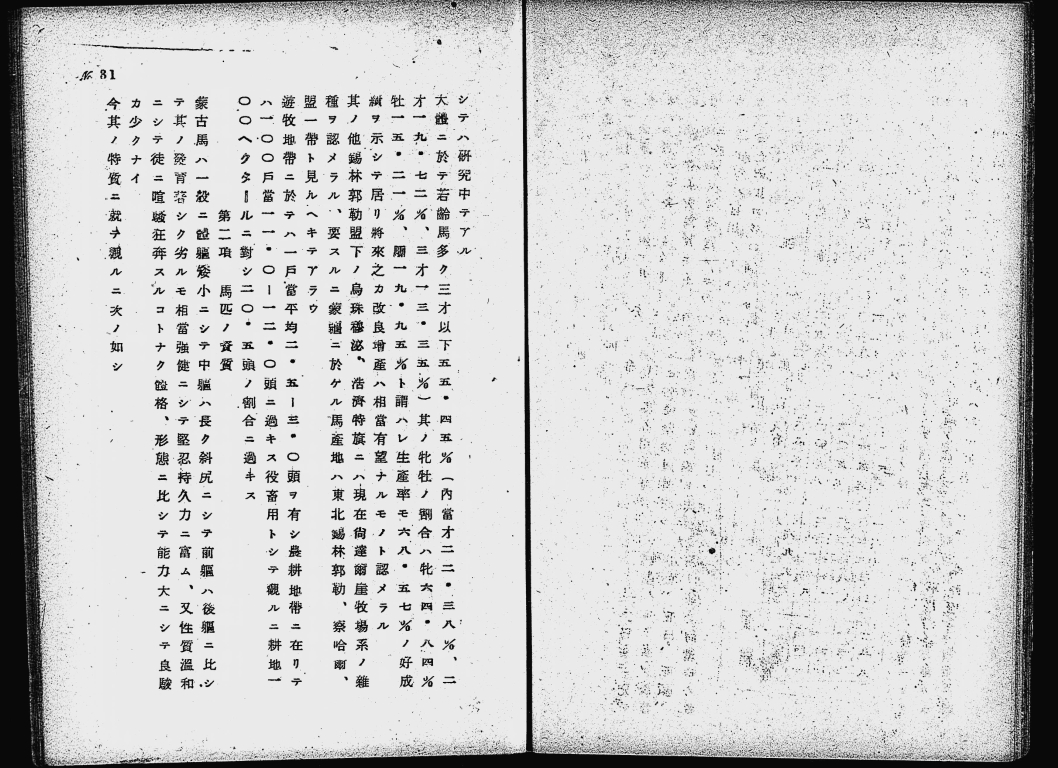 No. 31
シテハ研究中テアル
大體ニ於テ若齡馬多ク三才以下五五・四五％（內當才二二・三八％、二
才一九・七二％、三才一三・三五％）其ノ牝牡ノ割合ハ牝六四・八四％
牡一五・二一％、騸一九・九五％ト謂ハレ生產率モ六八・五七％ノ好成
績ヲ示シテ居リ將來之カ改良增產ハ相當有望ナルモノト認メラル
其ノ他錫林郭勒盟下ノ烏珠穆沁、浩濟特旗ニハ現在尙達爾崖牧場系ノ雜
種ヲ認メラル、要スルニ蒙疆ニ於ケル馬產地ハ東北錫林郭勒、察哈爾、
盟一帶ト見ルヘキテアラウ
遊牧地帶ニ於テハ一戶當平均二・五ー三・〇頭ヲ有シ農耕地帶ニ在リテ
ハ一〇〇戶當一一・〇ー一二・〇頭ニ過キス役畜用トシテ觀ルニ耕地一
〇〇ヘクタールニ對シ二〇・五頭ノ割合ニ過キス
第二項　馬匹ノ資質
蒙古馬ハ一般ニ體軀矮小ニシテ中軀ハ長ク斜尻ニシテ前軀ハ後軀ニ比シ
テ其ノ發育著シク劣ルモ相當强健ニシテ堅忍持久力ニ富ム、又性質溫和
ニシテ徒ニ喧騷狂奔スルコトナク體格、形態ニ比シテ能力大ニシテ良駿
カ少クナイ
今其ノ特質ニ就テ觀ルニ次ノ如シ